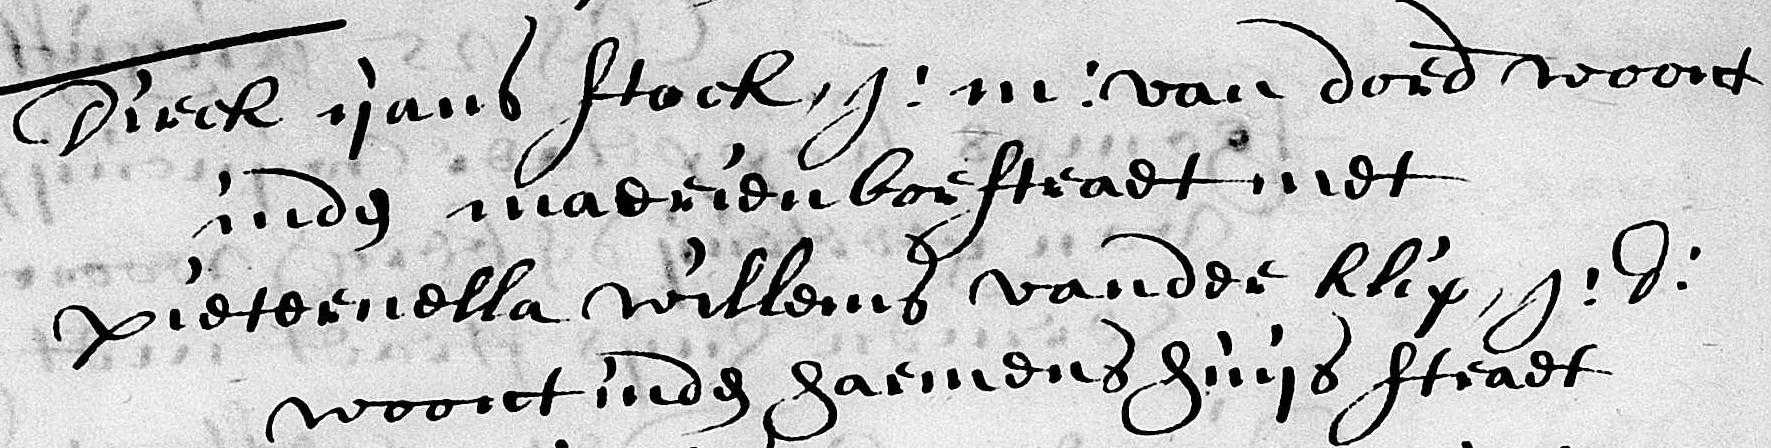 Dirck ijans stock, j: m: van dord woont
inde maerienborstraet met
pieternella willems vander klip, j: d:
woont inde harmens huijs straet